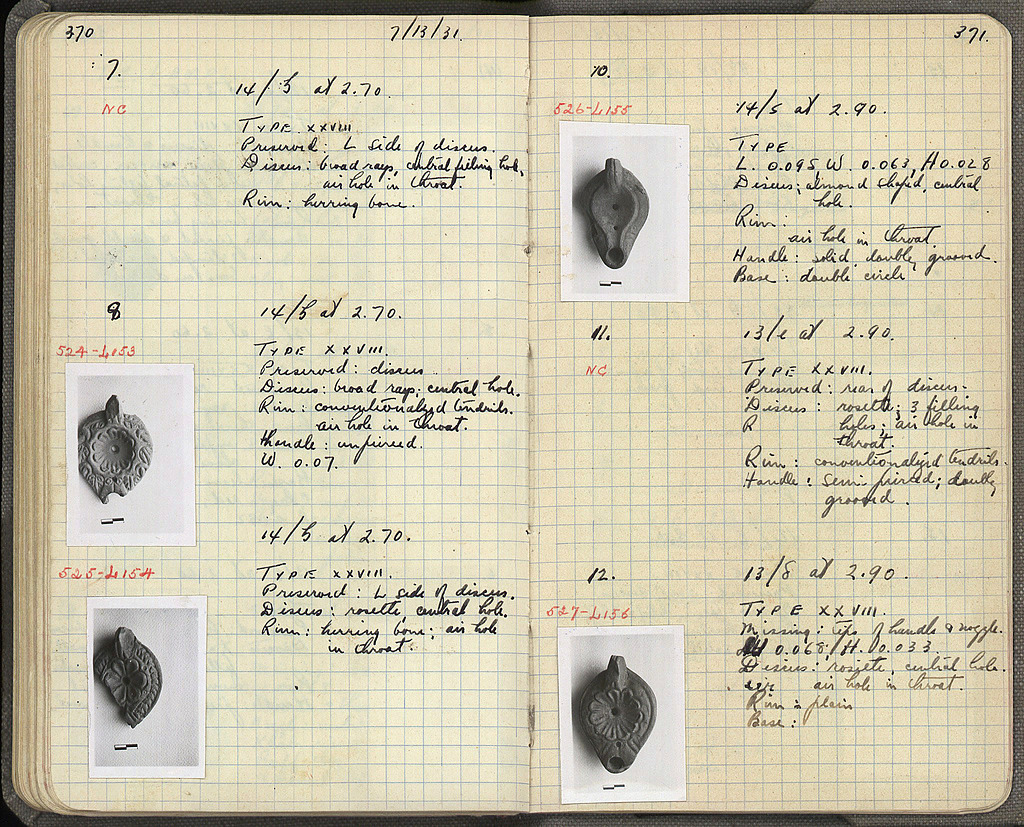 370
7/13/31.
7.
14/ at 2.70.
NC
TYPE XXVIII
Preserved: L side of discus.
Discus: broad rays, central filling hole,
air hole in throat.
Rim: herring bone.
8
14/ at 2.70.
524-L153
TYPE XXVIII.
Preserved: discus
Discus: broad rays; central hole.
Rim: conventionalized tendrils.
air hole in throat.
Handle: unpierced.
W. 0.07.
14/ at 2.70.
525-L154
TYPE XXVIII.
Preserved: L side of discus.
Discus: rosette, central hole.
Rim: herring bone; air hole
in throat.
371.
10.
526-L155
14/ at 2.90.
TYPE
L. 0.095, W. 0.063, H 0.028
Discus: almond shaped, central
hole.
Rim:
air hole in throat.
Handle: solid doubly grooved.
Base: double circle
11.
13/ at 2.90.
NC
TYPE XXVIII.
Preserved: rear of discus.
Discus: rosette; 3 filling
R holes; air hole in
throat.
Rim: conventionalized tendrils.
Handle: semi pierced; doubly
grooved.
12.
13/ at 2.90.
527-L156
TYPE XXVIII.
Missing: tips of handle & nozzle.
0.068 / H. 0.033
Discus: rosette, central hole.
air hole in throat.
Rim: plain
Base: